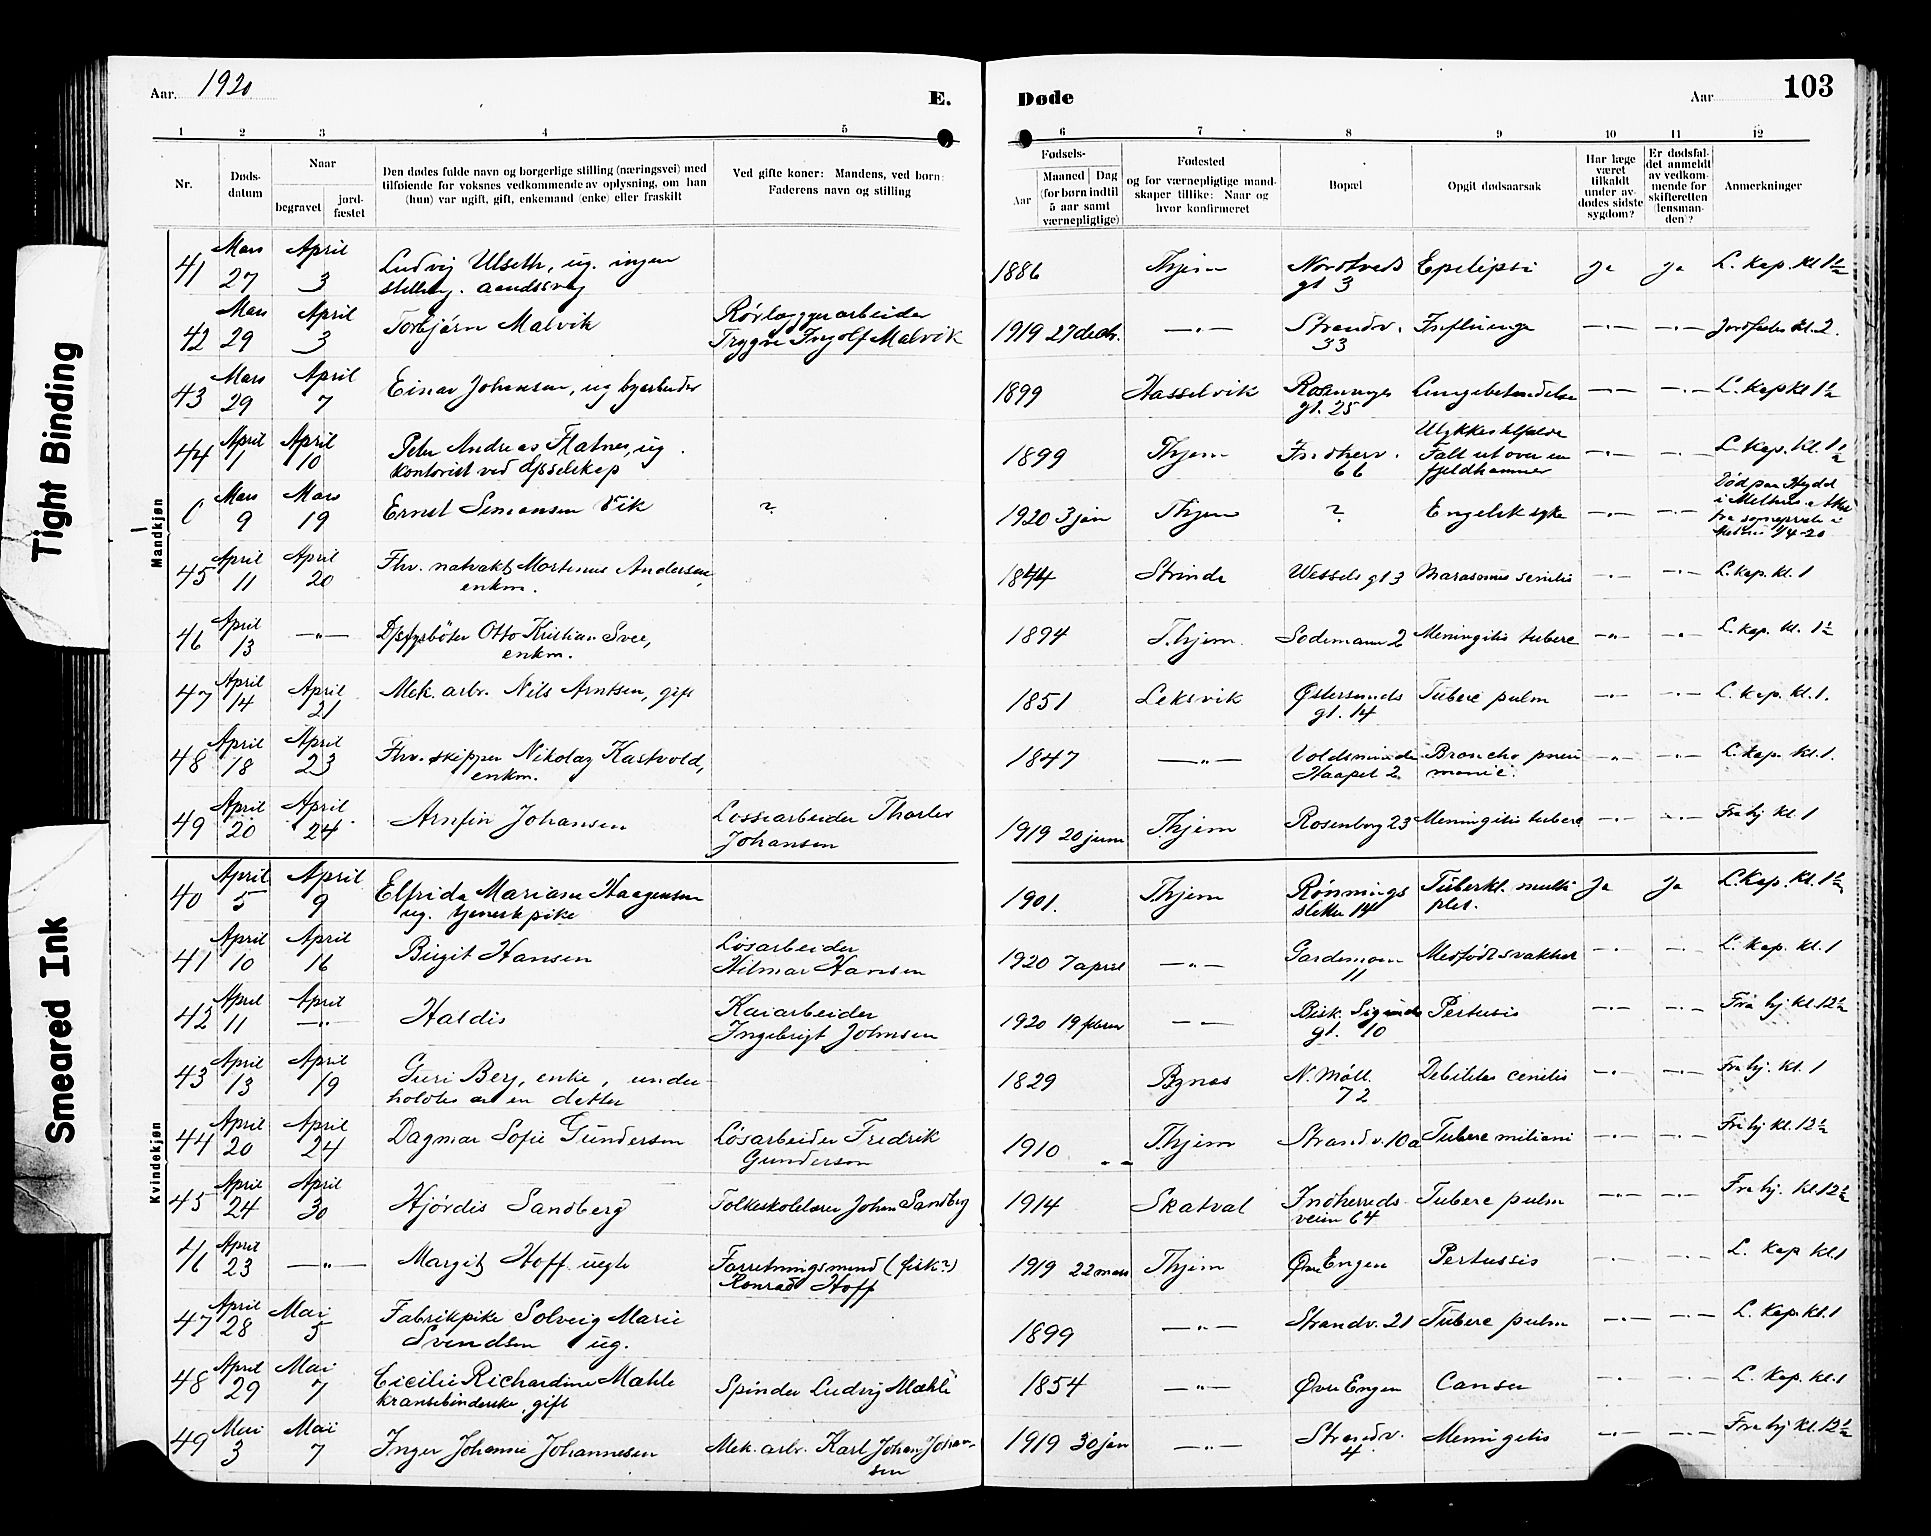 Aar. 1920
E. Døde
Aar
103
1 2 3 4 5 6 7 8 9 10 11 12
Nr.
Døds-
datum
Naar
begravet
jord-
fæstet
Den dødes fulde navn og borgerlige stilling (næringsvei) med
tilføiende for voksnes vedkommende av oplysning, om han
(hun) var ugift, gift, enkemand (enke) eller fraskilt
Ved gifte koner: Mandens, ved børn:
Faderens navn og stilling
Fødsels-
Aar
Maaned Dag
(for børn indtil
5 aar samt
værnepligtige)
Fødested
og for værnepligtige mand-
skaper tillike: Naar og
hvor konfirmeret
Bopæl
Opgit dødsaarsak
Har læge
været
tilkaldt
under av-
dødes sidste
sygdom?
Er dødsfal-
det anmeldt
av vedkom-
mende for
skifteretten
(lensman-
den)?
Anmerkninger
Tight Binding
Smeared Ink
Mandkjøn
Kvindekjøn
41 Mars 27 April 3 Ludvig Ulseth, ug. ingen stilling. aandssvag 1886 Thjem Nordtveds gt 3 Epilepsi Ja Ja L. Kap. Kl 1½
42 Mars 29 April 3 Torbjørn Malvik Rørlæggerarbeider Trygve Ingolf Malvik 1919 27 decbr. —"— Strandv. 33 —"— —"— Jordfestes Kl. 2.
43 Mars 29 April 7 Einar Johansen, ug byarbeider 1899 Hasselvik gt. 25 Lungebetændelse —"— —"— L. Kap Kl 1½
44 April 1 April 10 Peter Andreas Flatnes, ug. kontorist ved d/sselskap 1899 Thjem Indherv. 66 Ulykkestilfælde Falt ut over en fjeldhammer —"— —"— L. Kap. Kl. 1½
Mars 9 Mars 19 Ernst Simonsen Vik ? 1920 3 jan Thjem ? Engelsk syke —"— —"— Død paa
45 April 11 April 20 Fhv. natvakt Mortinus Andersen, enkm. Strinda Wessels gt 3 Marasmus senilis —"— —"— L. Kap. Kl. 1
46 April 13 —"— Otto Kristian Svee, enkm. 1894 T.hjem Sodemann 2 Meningitis tuberc —"— —"— L. Kap. Kl. 1½
47 April 14 April 21 Mek. arb. Nils Arntsen, gift 1851 Leksvik Østersunds gt. 14 Tuberc pulm —"— —"— L. Kap. Kl. 1.
48 April 18 April 23 Fhv. skipper Nikolay Kastvold, enkm. 1847 —"— Voldsminde Haapet 2 Broncho pneu monie. —"— —"— L. Kap. Kl. 1.
49 April 20 April 24 Arnfin Johansen Lossearbeider Tharlev Johansen 1919 20 juni Thjem Rosenborg 23 Meningitis tuberc —"— —"— Fra hj Kl. 1
40 April 5 April 9 Elfrida Mariane Haagensen ug. tjenestpike 1901. Thjem Rønnings sletten 14 Tuberkl. multi plex. Ja Ja L. Kap. Kl. 1½
41 April 10 April 16 Birgit Hansen Løsarbeider Hilmar Hansen 1920 7 april —"— Gardemoen 11 Medfødt svakhet —"— —"— L. Kap. Kl. 1
42 April 11 April —"— Haldis Kaiarbeider Ingebrigt Johnsen 1920 19 februar —"— Bisk. Sigurds gt. 10 Pertusis —"— —"— Fra hj Kl. 12½
43 April 13 April 19 Guri Berg, enke, under- holdes av en datter 1829 Bynes N. Møll. 72 Debilitas cenilis —"— —"— Fra hj. Kl. 1
44 April 20 April 24 Dagmar Sofie Gundersen Løsarbeider Fredrik Gunderson 1910 Thjem Strandv. 10a Tuberc miliaris —"— —"— Fra hj Kl. 12½
45 April 24 April 30 Hjørdis Sandberg Folkeskolelærer Johan Sandberg 1914 Skatval Indherreds- veien 64 Tuberc pulm —"— —"— Fra hj. Kl 12½
46 April 23 —"— Margit Hoff uegte Forretningsmand (fisk?) Konrad Hoff 1919 22 mars Thjem Øvre Engen Pertussis —"— —"— L. Kap Kl 1
47 April 28 Mai 5 Fabrikpike Solveig Marie Svendsen ug. 1899 —"— Strandv. 21 Tuberc pulm —"— —"— L. Kap. Kl. 1
48 April 29 Mai 7 Cicilie Richardine Mæhle kransebinderske, gift Spinder Ludvig Mæhle 1854 —"— Øvre Engen Cancer —"— —"— L. Kap. Kl. 1
49 Mai 3 Mai 7 Inger Johanne Johannesen Mek. arb. Karl Johan Johan- sen 1919 30 jan —"— Strandv. 4 Meningitis —"— —"— Fra hj Kl. 12½